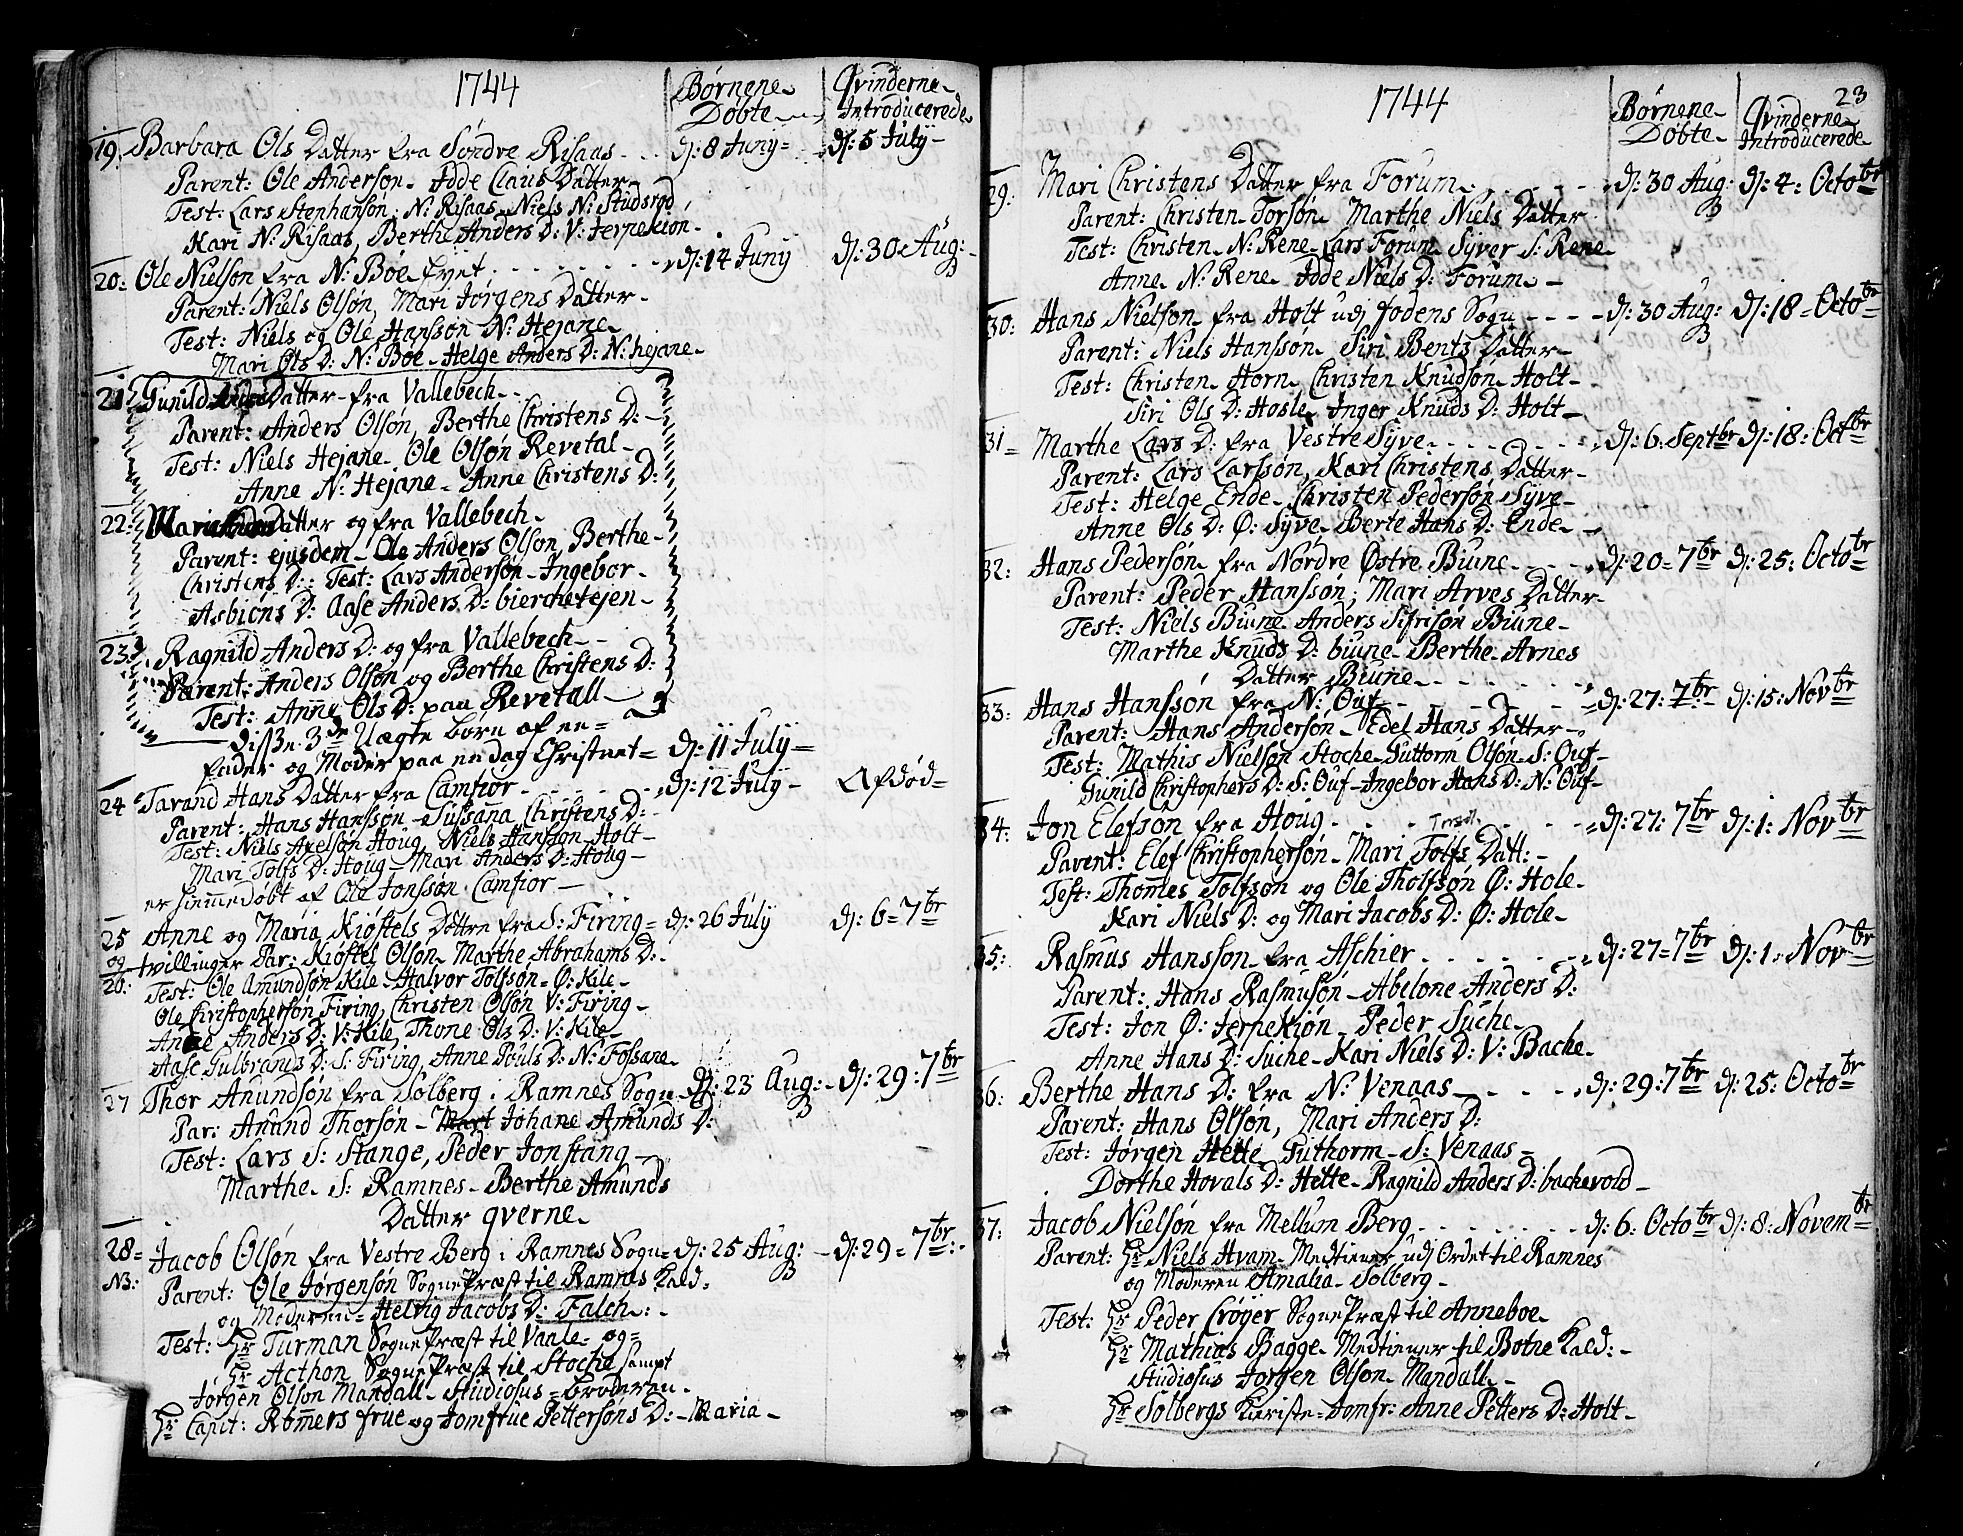 1744
Børnene Døbte
Qvinderne Introducerede
19. Barbara Ols Datter fra Søndre Risaas - dj: 8 Junij - dj: 5 Julij -
Parent: Ole Andersøn - Idde Claus Datter -
Test: Lars Stephansøn, N: Risaas - Niels N: Studsrød
Kari N: Risaas, Berthe Anders D: V: Jernekiøn -
20: Ole Nielsøn fra N: Bøe - - dj: 14 Junij dj: 30 Aug:
Parent: Niels Olsøn, Mari Jørgens Datter -
Test: Niels og Ole Hanssøn N: Hejane -
Mari Ols D: N: Bøe - Helge Anders D: N: hejane -
21 Gunild Datter fra Vallebech -
Parent: Anders Olsøn, Berthe Christens D: -
Test: Niels Hejane - Ole Olsøn Revetal -
Anne N: Hejane - Anne Christens D:
22: Maria Datter og fra Vallebech -
Parent: ejusdem - Ole Anders Olsøn, Berthe -
Christens D: Test: Lars Andersøn - Ingebor -
Asbiøns D: Aase Anders D: bierchetejen -
23 Ragnild Anders D: og fra Vallebech -
Parent: Anders Olsøn og Berthe Christens D:
Test: Anne Ols D: paa Revetall -
Disse 3de Uægte børn af en =
Fader og Moder paa en dag Christnet = dj: 11 Julij =
24 Tarand Hans Datter fra Camfior - dj: 12 Julij - Afdød =
Parent: Hans Hanssøn - Sussana Christens D:
Test: Niels Axelsøn Houg, Niels Hanssøn Holt -
Mari Tolfs D: Houg - Mari Anders D: Houg -
er hiemmedøbt af Ole Jonssøn Camfior -
25 Anne og Maria Kiøstels Døttre fra S: Firing = dj: 26 Julij dj: 6 = 7br
og tvillinger Par: Kiøstel Olsøn - Marthe Abrahams D:
26: Test: Ole Amundsøn Kile - Halvor Tolfsøn - Ø: Kile -
Ole Christophersøn Firing, Christen Olsøn V: Firing -
Anne Anders D: V: Kile, Thone Ols D: V: Kile -
Aase Gulbrands D: S: Firing, Anne Pouls D: N: Fossane -
27 Thor Anundsøn fra Solberg i Ramnes Sogn - dj: 23 Aug: - dj: 29: 7br
Par: Anund Thorsøn - Johane Amunds D:
Test: Lars S: Stange, Peder Jonstang -
Marthe S: Ramnes - Berthe Amunds
Datter qverne -
28 = Jacob Olsøn fra Vestre Berg i Ramnes Sogn = dj: 25 Aug: - dj: 29 = 7br: -
NB: Parent: Ole Jørgensøn Sogne Præst til Ramnæs Kald.
og Moderen = Helvig Jacobs D: Falch: -
Test: Hr Turman Sogne Præst til Vaale - og =
Hr Acthon Sogne Præst til Stoche sampt
Jørgen Olsøn Mandall - Studiosus = broderen -
Hr Capit: Rømers frue og Jomfrue Pettersøns D: - Maria -
1744
23
Børnene Døbte
Qvinderne Introducerede
29: Mari Christens Datter fra Forum - dj: 30 Aug: dj: 4: Octobr
Parent: Christen Torsøn - Marthe Niels Datter
Test: Christen N: Rene - Lars Forum - Syver S: Rene -
Anne N: Rene - Idde Niels D: Forum -
30: Hans Nielsøn fra Holt udj Fodens Sogn - dj: 30 Aug: dj: 18 = Octobr
Parent: Niels Hanssøn - Siri Bents Datter -
Test: Christen Horn - Christen Knudsøn Holt -
Siri Ols D: Hosle - Inger Knuds D: Holt -
31 = Marthe Lars D: fra Vestre Syve - dj: 6: Septbr dj: 18: Octbr
Parent: Lars Larssøn, Kari Christens Datter -
Test: Helge Ende - Christen Pedersøn Syve -
Anne Ols D: Ø: Syve - Berte Hans D: Ende -
32: Hans Pedersøn fra Nordre Østre Biune - dj: 20 = 7br dj: 25: Octobr
Parent: Peder Hanssøn, Mari Arves Datter -
Test: Niels Biune - Anders Sifrisøn Biune -
Marthe Knuds D: biune - Berthe Arnes
Datter Biune -
33: Hans Hanssøn fra N: Ouf - dj: 27: 7br - dj: 15: Novbr
Parent: Hans Andersøn - Edel Hans Datter -
Test: Mathis Nielsøn Stoche - Guttorm Olsøn - S: Ouf -
Gunild Christophers D: S: Ouf - Ingebor Hans D: N: Ouf -
34: Jon Elefsøn fra Houg - dj: 27: 7br dj: 1: Novbr
Parent: Elef Christophersøn - Mari Tolfs Datt: -
Test: Thommes Tolfsøn og Ole Tholfsøn Ø: Hole -
Kari Niels D: og Mari Jacobs D: Ø: Hole -
35: Rasmus Hanssøn fra Aschier - dj: 27 = 7br dj: 1: Novbr
Parent: Hans Rasmusøn - Abelone Anders D:
Test: Jon Ø: Jernekiøn - Peder Suche -
Anne Hans D: Suche - Kari Niels D: V: Bache -
36: Berthe Hans D: fra N: Venaas - dj: 29: 7br dj: 25: Octobr
Parent: Hans Olsøn, Mari Anders D:
Test: Jørgen Hette Guthorm - S: Venaas -
Dorthe Hovals D: Hette - Ragnild Anders D: bachevold -
37: Jacob Nielsøn fra Mellum Berg - dj: 6: Octobr dj: 8: Novembr
Parent: Hr Niels Hvam - Medtiener udj Ordet til Ramnes
og Moderen Amalia - Solberg -
Test: Hr Peder Crøger Sogne Præst til Anneboe -
Hr Mathias Bagge - Medtiener til Botne Kald: -
Studiosus Jørgen Olsøn - Mandall -
Hr Solbergs Kiæriste = Jomfr: Anne Petters D: Holt -